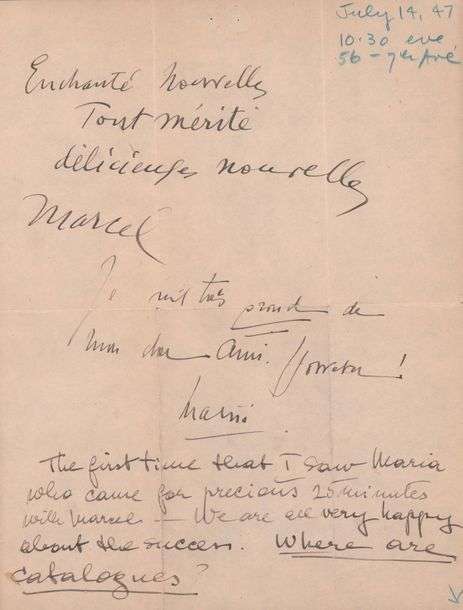 July 14, 47
10.30 eve
56 - 7th Ave
Enchanté nouvelles
Tout mérité
délicieuses nouvelles
Marcel
Je suis très proud de
mon cher Ami.
Maria
The first time that I saw Maria
who came for precious 25 minutes
with Marcel — We are all very happy
about the success. Where are
catalogues?